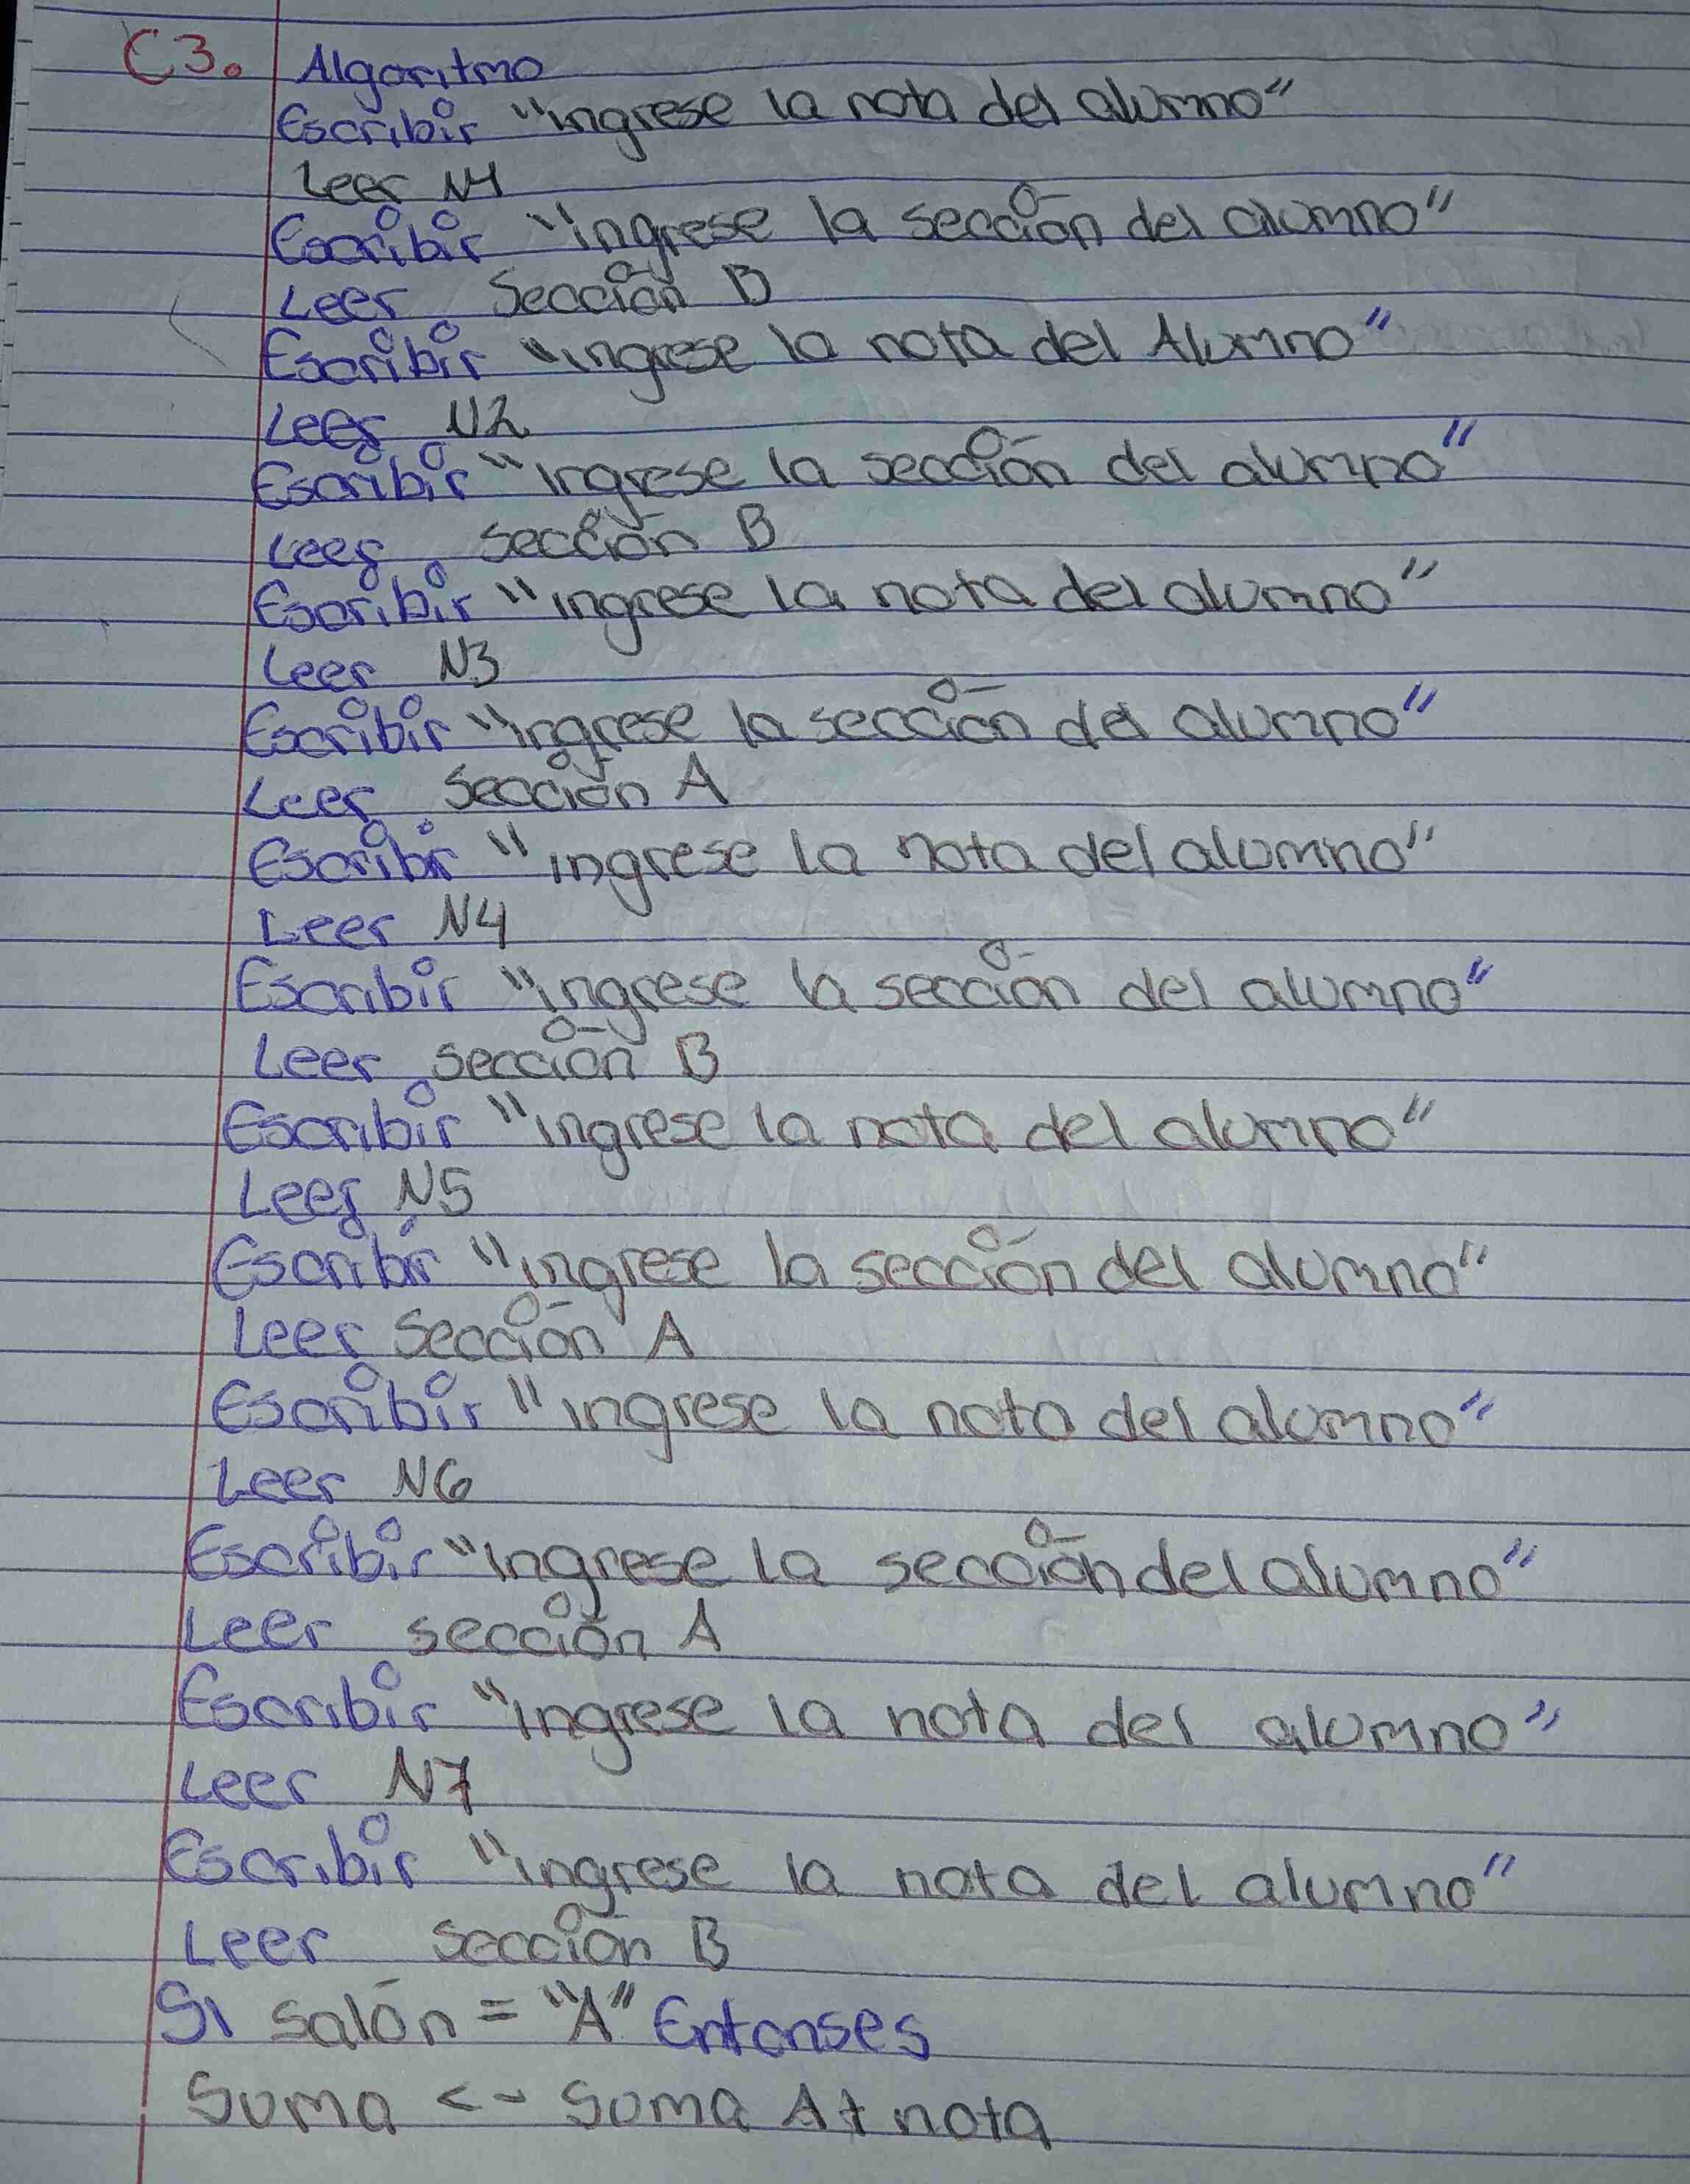 C3. Algoritmo
Escribir "ingrese la nota del alumno"
Leer N1
Escribir "ingrese la sección del alumno"
Leer Sección B
Escribir "ingrese la nota del Alumno"
Leer N2
Escribir "ingrese la sección del alumno"
Leer sección B
Escribir "ingrese la nota del alumno"
Leer N3
Escribir "ingrese la sección del alumno"
Leer Sección A
Escribir "ingrese la nota del alumno"
Leer N4
Escribir "ingrese la sección del alumno"
Leer sección B
Escribir "ingrese la nota del alumno"
Leer N5
Escribir "ingrese la sección del alumno"
Leer Sección A
Escribir "ingrese la nota del alumno"
Leer N6
Escribir "Ingrese la sección del alumno"
Leer sección A
Escribir "ingrese la nota del alumno"
Leer N7
Escribir "ingrese la nota del alumno"
Leer Sección B
Si salón = "A" Entonses
Suma <- Suma A + nota